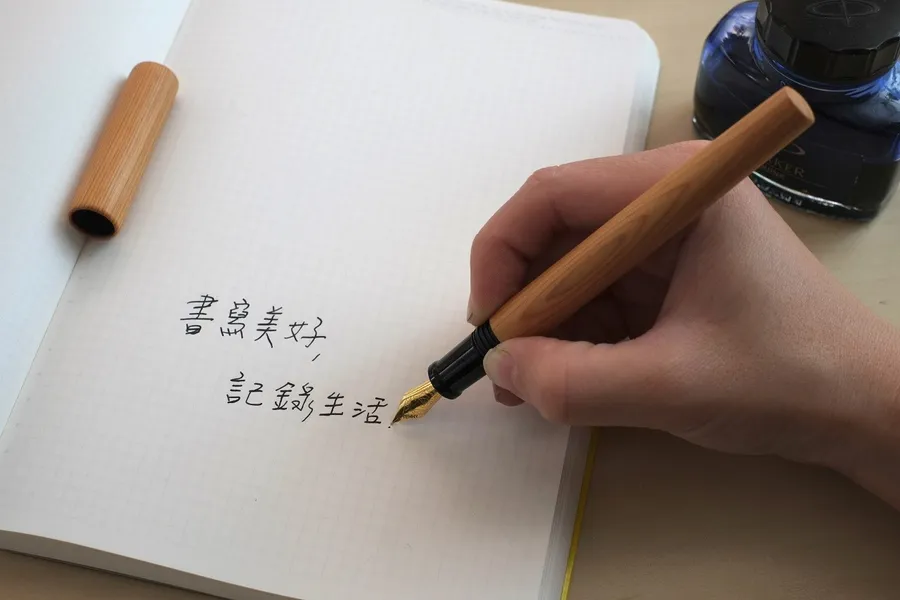 書寫美好,
記錄生活.